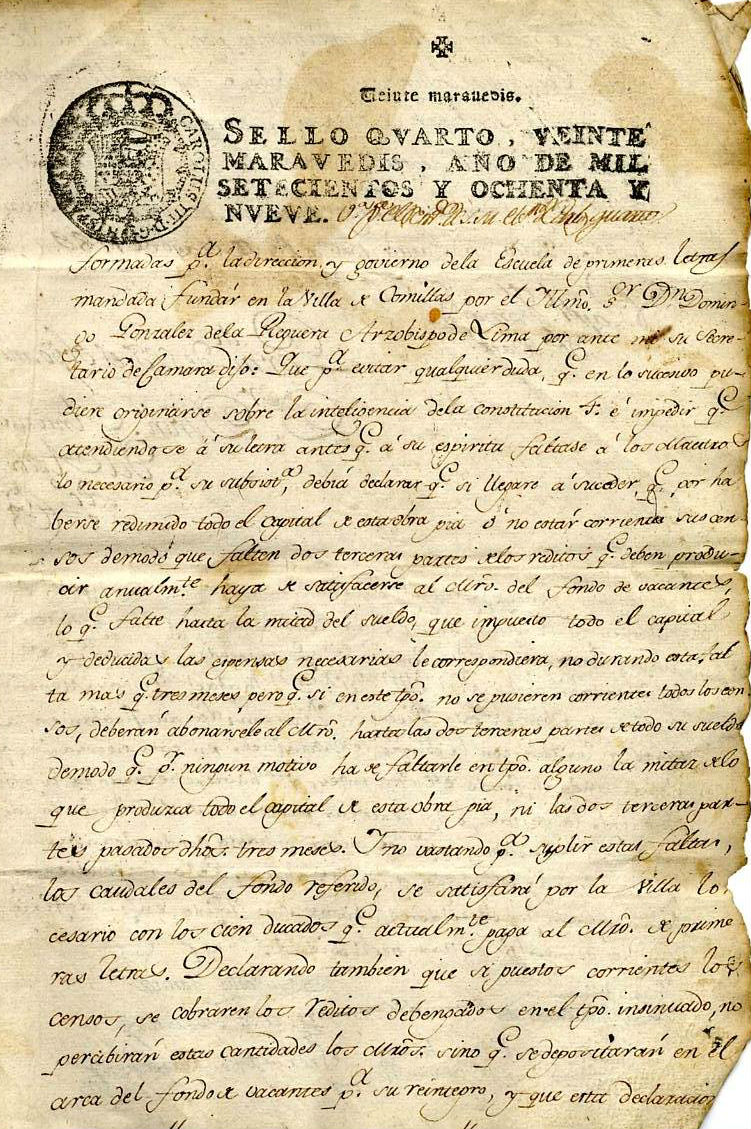 ✠
Veinte maravedis.
SELLO QVARTO, VEINTE
MARAVEDIS, AÑO DE MIL
SETECIENTOS Y OCHENTA Y
NVEVE.
CAROLUS III D G
formadas pª. la direccion, y govierno dela Escuela de primeras letras
mandada fundar en la Villa de Comillas por el Yllmo. Sor. Dn. Domin-
go Gonzalez dela Reguera Arzobispo de Lima por ante mi su Secre-
tario de Camara dijo: Que pª. evitar qualquier duda, qe. en lo sucesivo pu-
diere originarse sobre la inteligencia dela constitucion 4ª. é impedir qe.
atendiendose á su letra antes qe. á su espiritu faltase á los Maestros
lo necesario pª. su subsistª., debiá declarar qe. si llegare á suceder, qe. por ha
berse redimido todo el capital de esta obra pia ó no estár corrientes sus cen-
sos demodo que falten dos terceras partes delos reditos qe. deben produ-
cir anualmte. haya de satisfacerse al Mro. del fondo de vacantes,
lo qe. falte hasta la mitad del sueldo, que impuesto todo el capital
y deducidas las espensas necesarias le correspondiera, no durando esta fal
ta mas qe. tres meses, pero qe. si en este tpo. no se pusieren corrientes todos los cen
sos, deberán abonarsele al Mro. hasta las dos terceras partes de todo su sueldo
demodo qe. pr. ningun motivo ha de faltarle en tpo. alguno la mitad delo
que produzca todo el capital de esta obra pia, ni las dos terceras par-
tes pasados dhos. tres meses. Y no vastando pª. suplir estas faltas,
los caudales del fondo referido, se satisfará por la Villa lo
cesario con los cien ducados qe. actualmte. paga al Mro. de prime
ras letras. Declarando tambien que si puestos corrientes los
censos, se cobraren los reditos debengados en el tpo. insinuado, no
percibirán estas cantidades los Mros. sino qe. se depositarán en el
arca del fondo de vacantes pª. su reintegro, y que esta declaracion